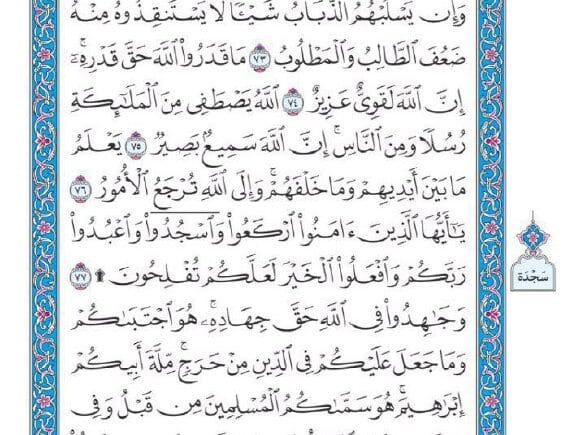 وَإِن يَسْلُبْهُمُ ٱلذُّبَابُ شَيْـًٔا لَّا يَسْتَنقِذُوهُ مِنْهُ
ضَعُفَ ٱلطَّالِبُ وَٱلْمَطْلُوبُ ٧٣ مَا قَدَرُوا۟ ٱللَّهَ حَقَّ قَدْرِهِۦٓ
إِنَّ ٱللَّهَ لَقَوِىٌّ عَزِيزٌ ٧٤ ٱللَّهُ يَصْطَفِى مِنَ ٱلْمَلَـٰٓئِكَةِ
رُسُلًا وَمِنَ ٱلنَّاسِ إِنَّ ٱللَّهَ سَمِيعٌۢ بَصِيرٌ ٧٥ يَعْلَمُ
مَا بَيْنَ أَيْدِيهِمْ وَمَا خَلْفَهُمْ وَإِلَى ٱللَّهِ تُرْجَعُ ٱلْأُمُورُ ٧٦
يَـٰٓأَيُّهَا ٱلَّذِينَ ءَامَنُوا۟ ٱرْكَعُوا۟ وَٱسْجُدُوا۟ وَٱعْبُدُوا۟
رَبَّكُمْ وَٱفْعَلُوا۟ ٱلْخَيْرَ لَعَلَّكُمْ تُفْلِحُونَ ۩ ٧٧
سَجْدَة
وَجَـٰهِدُوا۟ فِى ٱللَّهِ حَقَّ جِهَادِهِۦ هُوَ ٱجْتَبَىٰكُمْ
وَمَا جَعَلَ عَلَيْكُمْ فِى ٱلدِّينِ مِنْ حَرَجٍ مِّلَّةَ أَبِيكُمْ
إِبْرَٰهِيمَ هُوَ سَمَّىٰكُمُ ٱلْمُسْلِمِينَ مِن قَبْلُ وَفِى